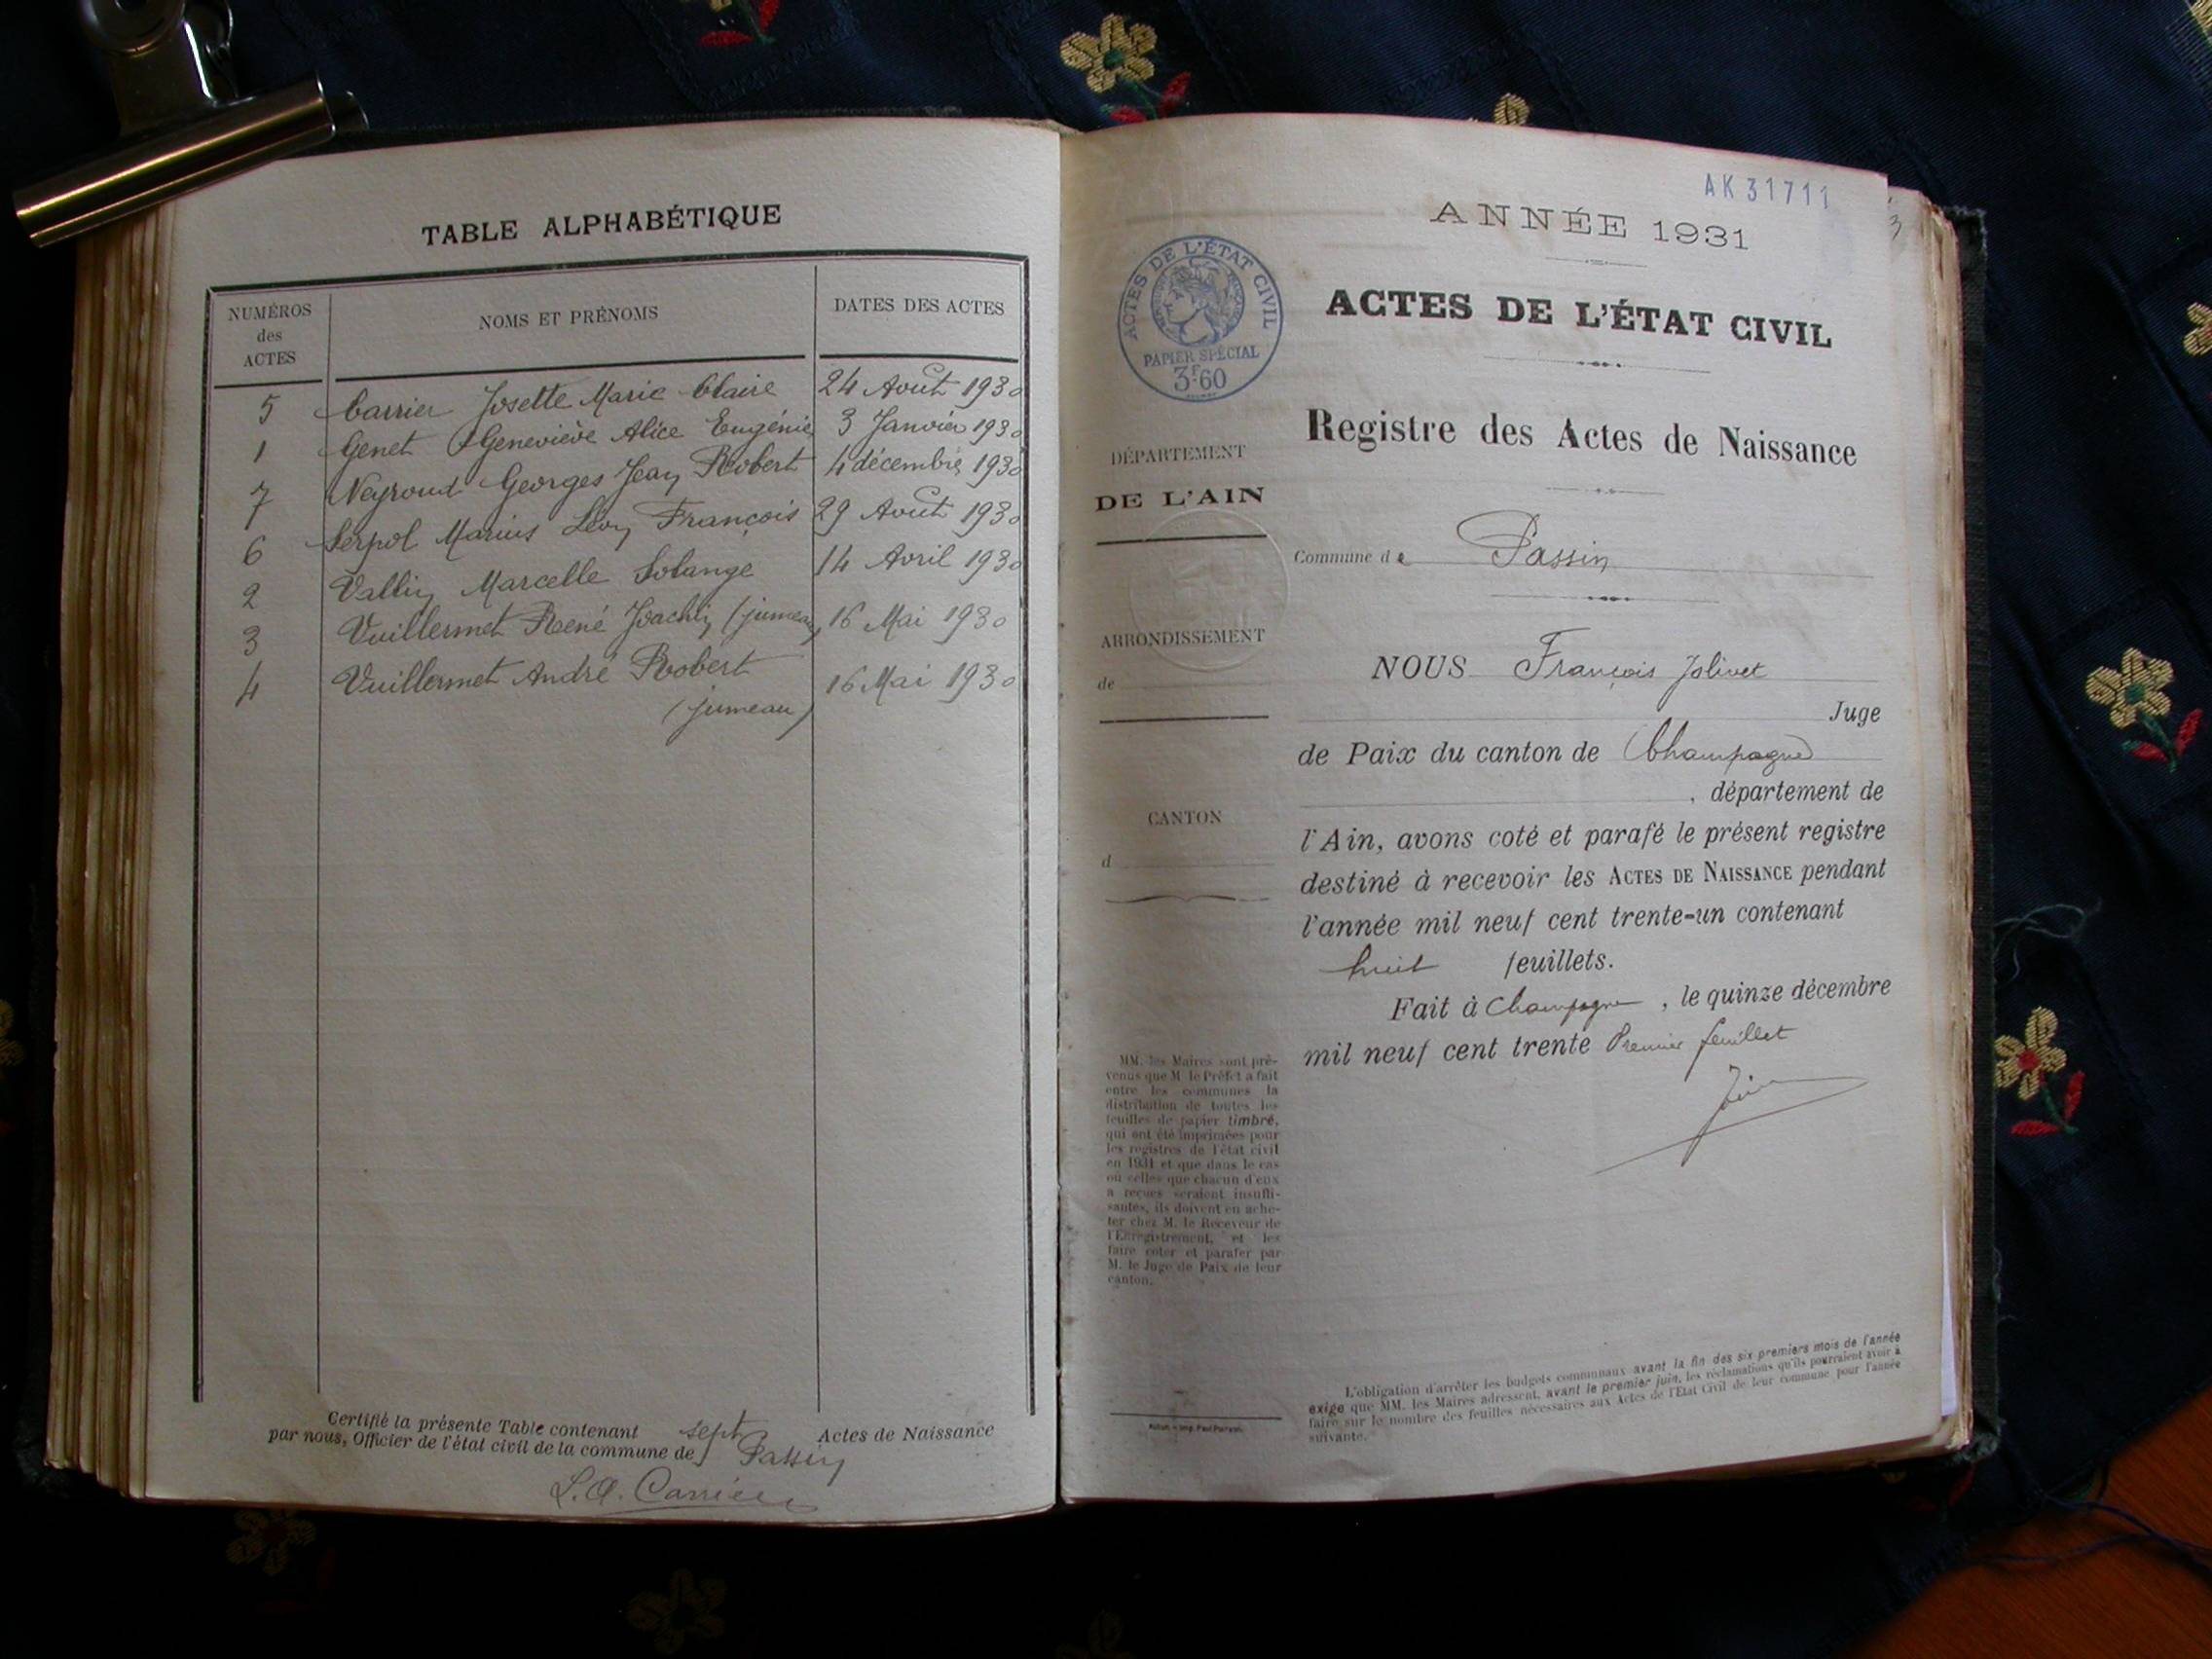 TABLE ALPHABÉTIQUE
NUMÉROS des ACTES NOMS ET PRÉNOMS DATES DES ACTES
5 Carrier Josette Marie Claire 24 Août 1930
1 Genet Geneviève Alice Eugénie 3 Janvier 1930
7 Neyroud Georges Jean Robert 4 décembre 1930
6 Serpol Marius Léon François 29 Août 1930
2 Vallin Marcelle Solange 14 Avril 1930
3 Vuillermet René Joachin (jumeau) 16 Mai 1930
4 Vuillermet André Robert 16 Mai 1930
(jumeau)
Certifié la présente Table contenant sept Actes de Naissance
par nous, Officier de l'état civil de la commune de Passin
AK31711
3
ANNÉE 1931
ACTES DE L'ÉTAT CIVIL
PAPIER SPÉCIAL
3F60
ACTES DE L'ÉTAT CIVIL
Registre des Actes de Naissance
DÉPARTEMENT
DE L'AIN
Commune de Passin
ARRONDISSEMENT
de
NOUS François Jolivet
Juge
de Paix du canton de Champagne
, département de
CANTON
d
l'Ain, avons coté et parafé le présent registre
destiné à recevoir les ACTES DE NAISSANCE pendant
l'année mil neuf cent trente-un contenant
huit feuillets.
Fait à Champagne, le quinze décembre
mil neuf cent trente Premier feuillet
MM. les Maires sont pré-
venus que M. le Préfet a fait
entre les communes la
distribution de toutes les
feuilles de papier timbré,
qui ont été imprimées pour
les registres de l'état civil
en 1931 et que dans le cas
où celles que chacun d'eux
a reçues seraient insuffi-
santes, ils doivent en ache-
ter chez M. le Receveur de
l'Enregistrement, et les
faire coter et parafer par
M. le Juge de Paix de leur
canton.
L'obligation d'arrêter les budgets communaux avant la fin des six premiers mois de l'année
exige que MM. les Maires adressent, avant le premier juin, les réclamations qu'ils pourraient avoir à
faire sur le nombre des feuilles nécessaires aux Actes de l'État Civil de leur commune pour l'année
suivante.